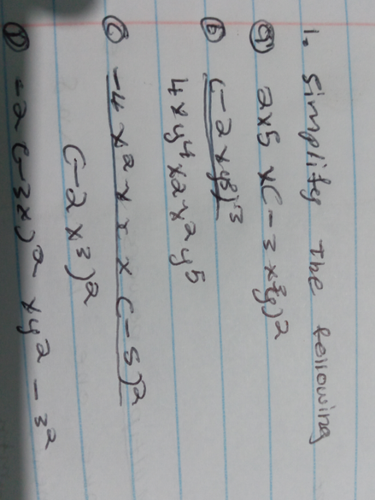 1. Simplify the following
a) 2x5 x(-3x²y)2
b) (-2xy8)3
4xy4x2x2y5
c) -4x2xxx(-5)2
(-2x3)2
d) -2(-3x)2xy2-32